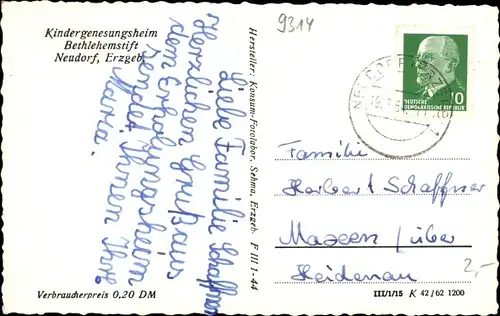 Kindergenesungsheim
Bethlehemstift
Neudorf, Erzgeb.
9314
Liebe Familie Schaffner
Herzlichen Gruß aus
dem Erholungsheim
sendet Ihnen Ihre
Maria.
Hersteller: Konsum-Fotolabor, Sehma, Erzgeb. F III 1-44
DEUTSCHE
DEMOKRATISCHE REPUBLIK
10
Familie
Herbert Schaffner
Maxen / über
Heidenau
2,-
Verbraucherpreis 0,20 DM
III/1/15 K 42/62 1200